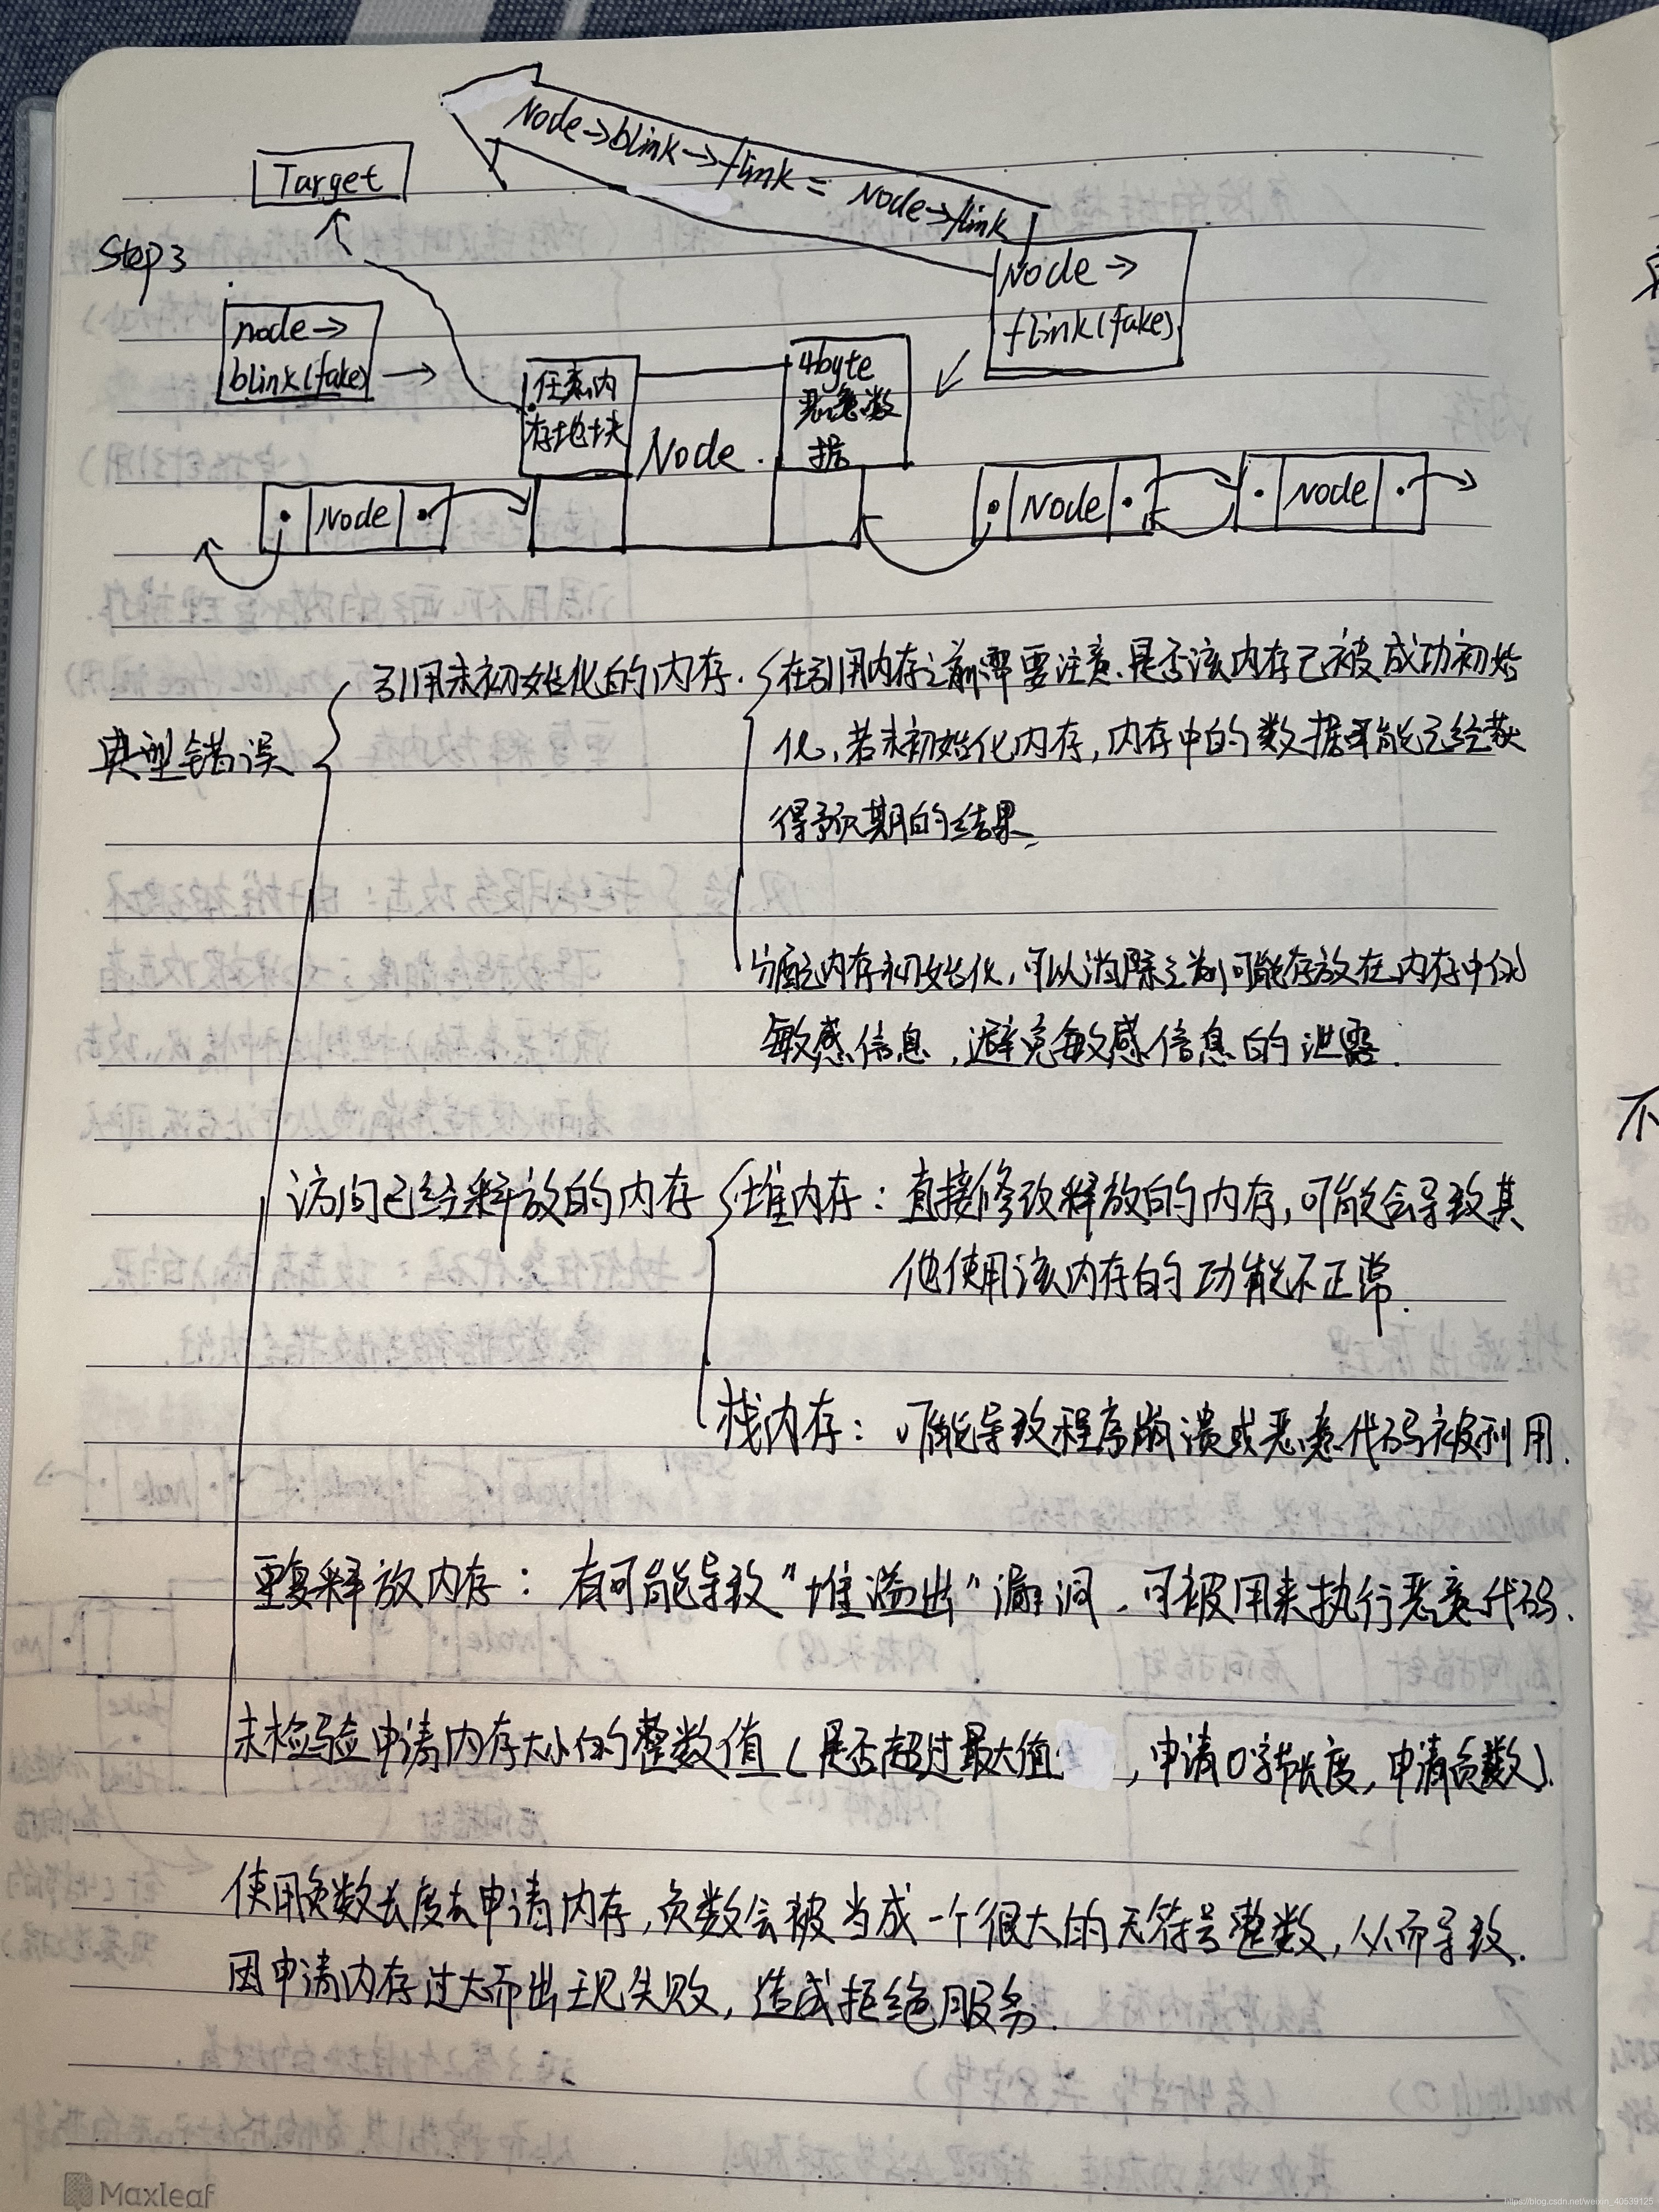 Node→blink→flink = Node→flink
Target
Step3
Node→
flink(fake)
node→
blink(fake) →
任意内
存地块
4byte
恶意数
据
Node
Node
Node
Node
典型错误
引用未初始化的内存.
在引用内存之前需要注意.是否该内存已被成功初始
化,若未初始化内存,内存中的数据可能已经获
得预期的结果、
分配内存初始化,可以消除之前可能存放在内存中的
敏感信息,避免敏感信息的泄露.
访问已经释放的内存
堆内存:直接修改释放的内存,可能会导致其
他使用该内存的功能不正常.
栈内存:可能导致程序崩溃或恶意代码被利用.
重复释放内存:有可能导致“堆溢出”漏洞,可被用来执行恶意代码.
未检验申请内存大小的整数值(是否超过最大值,申请0字节长度,申请负数).
使用负数长度去申请内存,负数会被当成一个很大的无符号整数,从而导致.
因申请内存过大而出现失败,造成拒绝服务.
不
Maxleaf
https://blog.csdn.net/weixin_40539125